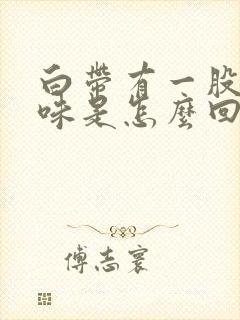 白带有一股
味是怎麼回
傅志寰